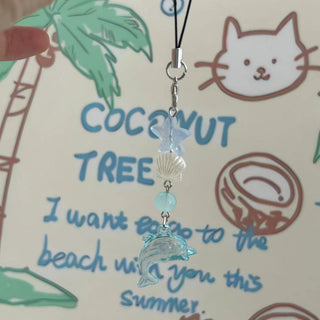 COCONUT
TREE
I want to go to the
beach with you this
summer.